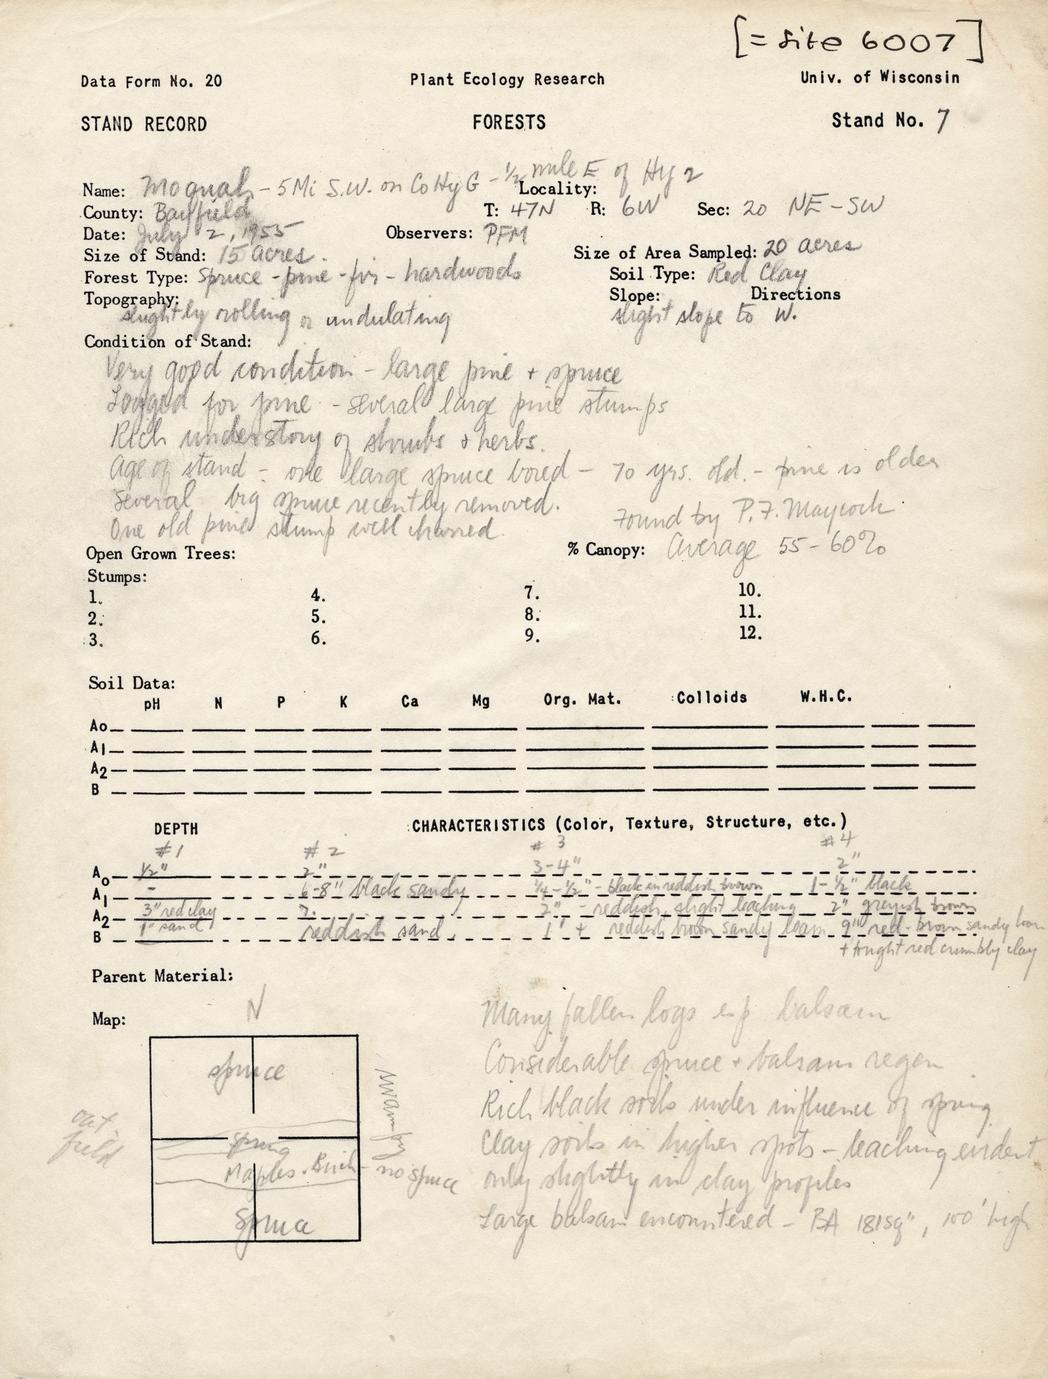 [= site 6007]
Data Form No. 20 Plant Ecology Research Univ. of Wisconsin
STAND RECORD FORESTS Stand No. 7
Name: Moquah - 5 Mi S.W. on Co Hy G - 1/2 mile E of Hy 2 Locality:
County: Bayfield T: 47N R: 6W Sec: 20 NE-SW
Date: July 2, 1955 Observers: PFM
Size of Stand: 15 acres. Size of Area Sampled: 20 acres
Forest Type: Spruce - pine - fir - hardwoods Soil Type: Red Clay
Topography: Slope: Directions
slightly rolling or undulating slight slope to W.
Condition of Stand:
Very good condition - large pine + spruce
Logged for pine - several large pine stumps
Rich understory of shrubs & herbs.
Age of stand - one large spruce bored - 70 yrs. old. - pine is older
Several big spruce recently removed.
Found by P.F. Maycock
One old pine stump well charred.
Open Grown Trees: % Canopy: Average 55-60%
Stumps:
1. 4. 7. 10.
2. 5. 8. 11.
3. 6. 9. 12.
Soil Data:
pH N P K Ca Mg Org. Mat. Colloids W.H.C.
Ao
A1
A2
B
DEPTH CHARACTERISTICS (Color, Texture, Structure, etc.)
#1 #2 #3 #4
Ao 1/2" 2" 3-4" 2"
A1 - 6-8" black sandy 1/4-1/2" - black in reddish brown 1-1/2" black
A2 3" red clay 2" - reddish, slight leaching 2" greyish brown
B 1" sand reddish sand. 1" + reddish brown sandy loam 9" red-brown sandy loam
+ red crumbly clay
Parent Material:
Map:
N
spruce
swampy
out
field
spring
Maples. Birch - no spruce
Spruce
Many fallen logs esp balsam
Considerable spruce + balsam regen
Rich black soils under influence of spring
Clay soils in higher spots - leaching evident
only slightly in clay profiles
Large balsam encountered - BA 181sq", 100' high